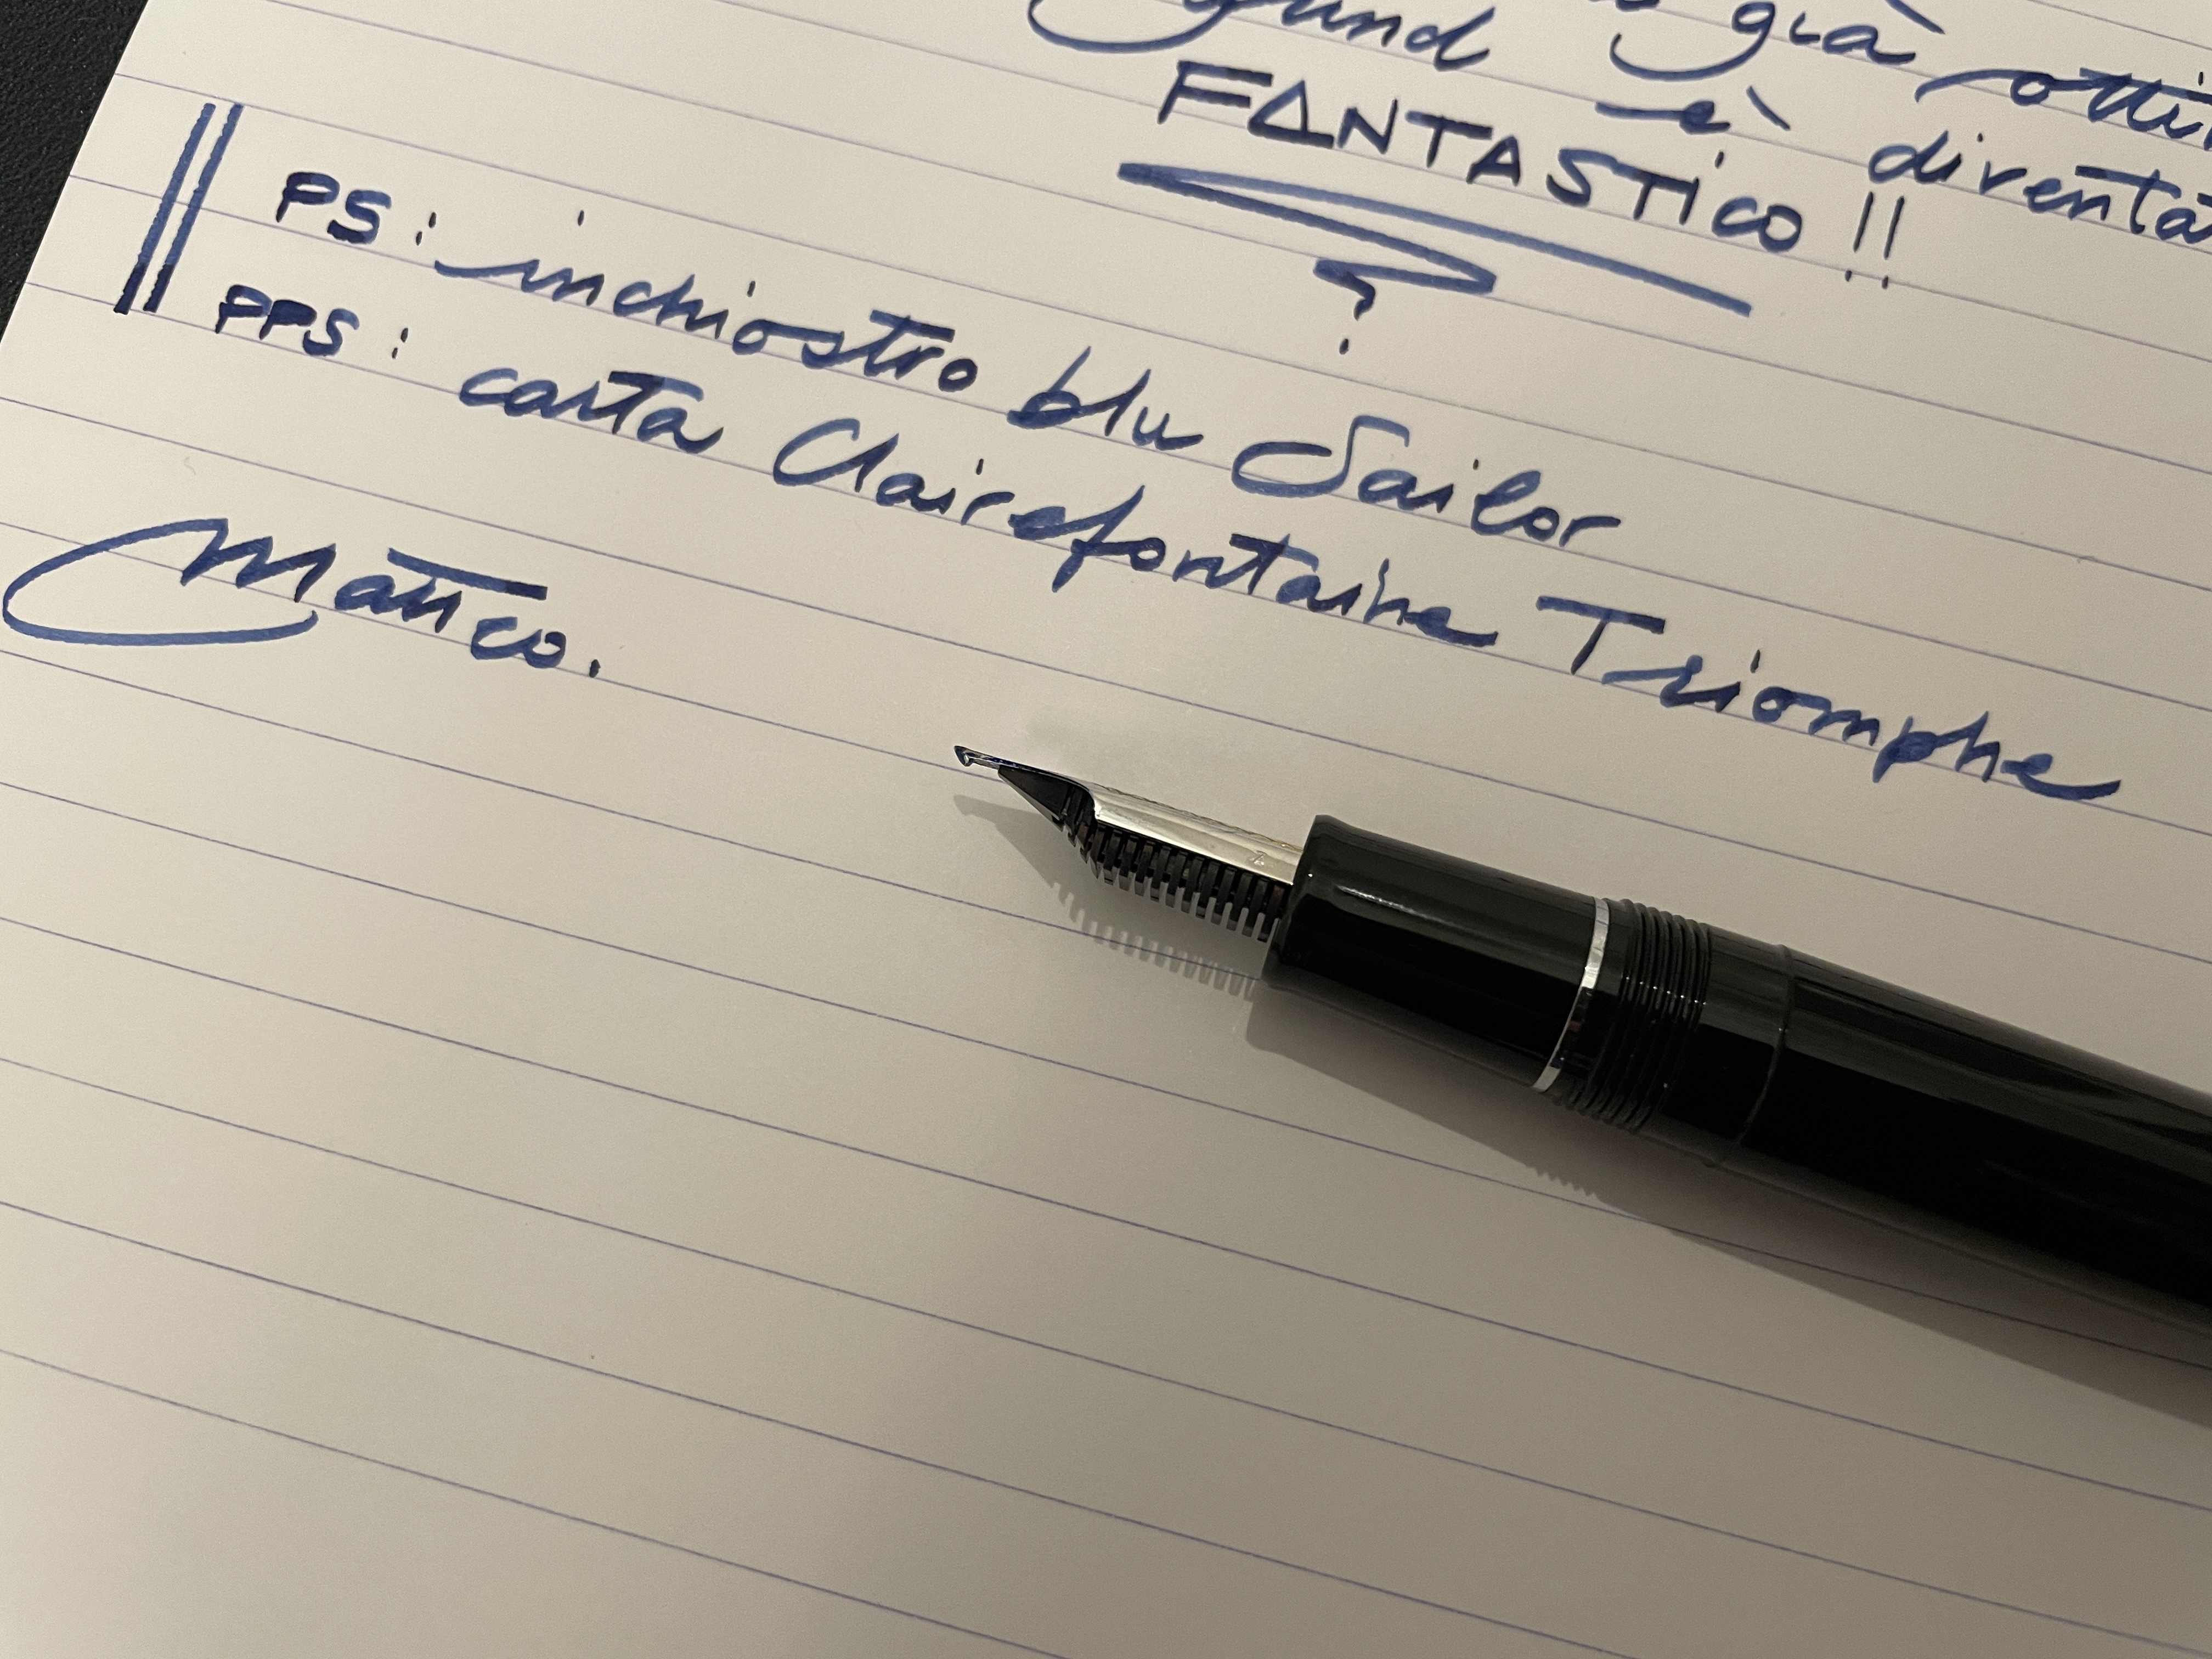 già otti
è diventa
FANTASTICO !!
PS: inchiostro blu Sailor
PPS: carta Clairefontaine Triomphe
Matteo.